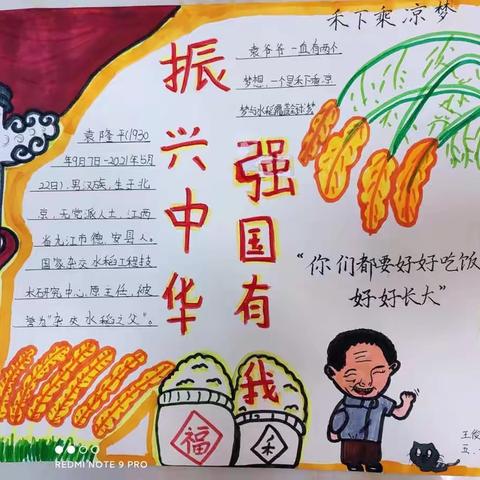 禾下乘凉梦
振兴中华
强国有我
袁爷爷一直有两个
梦想,一个是禾下乘凉
梦与水稻覆盖全球梦
袁隆平(1930
年9月7日-2021年5月
22日),男汉族,生于北
京,无党派人士,江西
省九江市德安县人。
国家杂交水稻工程技
术研究中心原主任,被
誉为"杂交水稻之父"。
"你们都要好好吃饭
好好长大"
福
禾
王俊
五.
REDMI NOTE 9 PRO